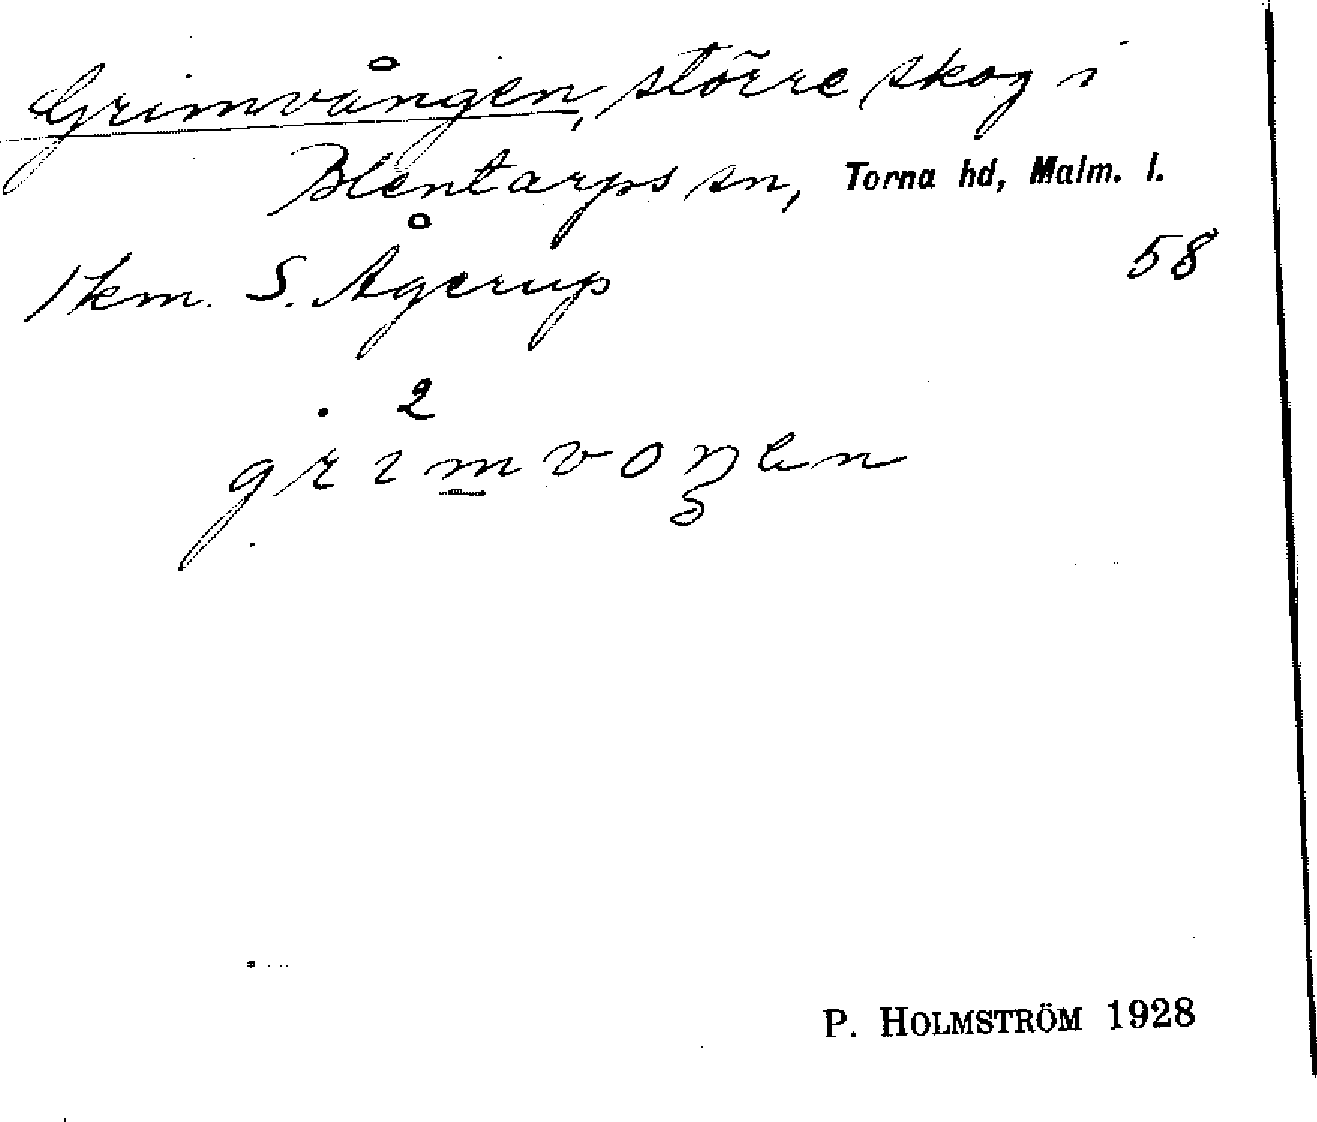 Grimvången, större skog i
Blentarps sn, Torna hd, Malm. l.
1 km. S. Ågerup 58
2
grimvoŋen
P. HOLMSTRÖM 1928